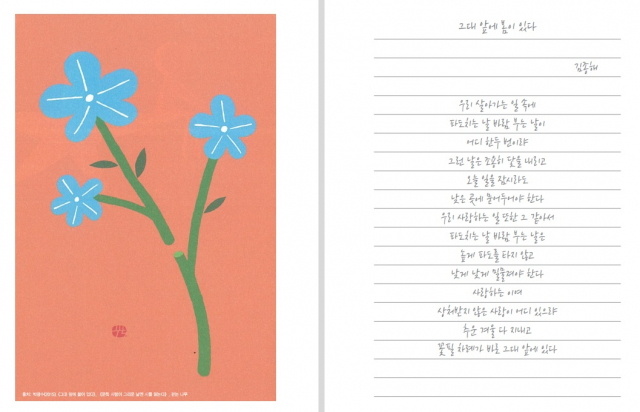 그대 앞에 봄이 있다
김종해
우리 살아가는 일 속에
파도치는 날 바람 부는 날이
어디 한두 번이랴
그런 날은 조용히 닻을 내리고
오늘 일을 잠시라도
낮은 곳에 묻어두어야 한다
우리 사랑하는 일 또한 그 같아서
파도치는 날 바람 부는 날은
높게 파도를 타지 않고
낮게 낮게 밀물져야 한다
사랑하는 이여
상처받지 않은 사랑이 어디 있으랴
추운 겨울 다 지내고
꽃필 차례가 바로 그대 앞에 있다